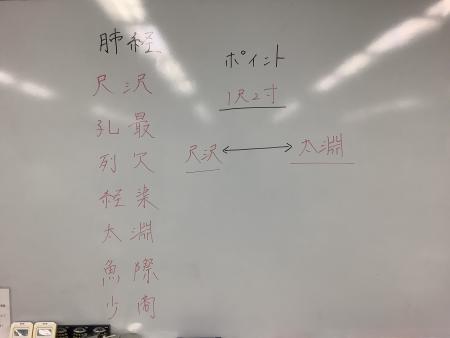 肺経
尺沢
孔最
列欠
経渠
太淵
魚際
少商
ポイント
1尺2寸
尺沢 ↔ 太淵